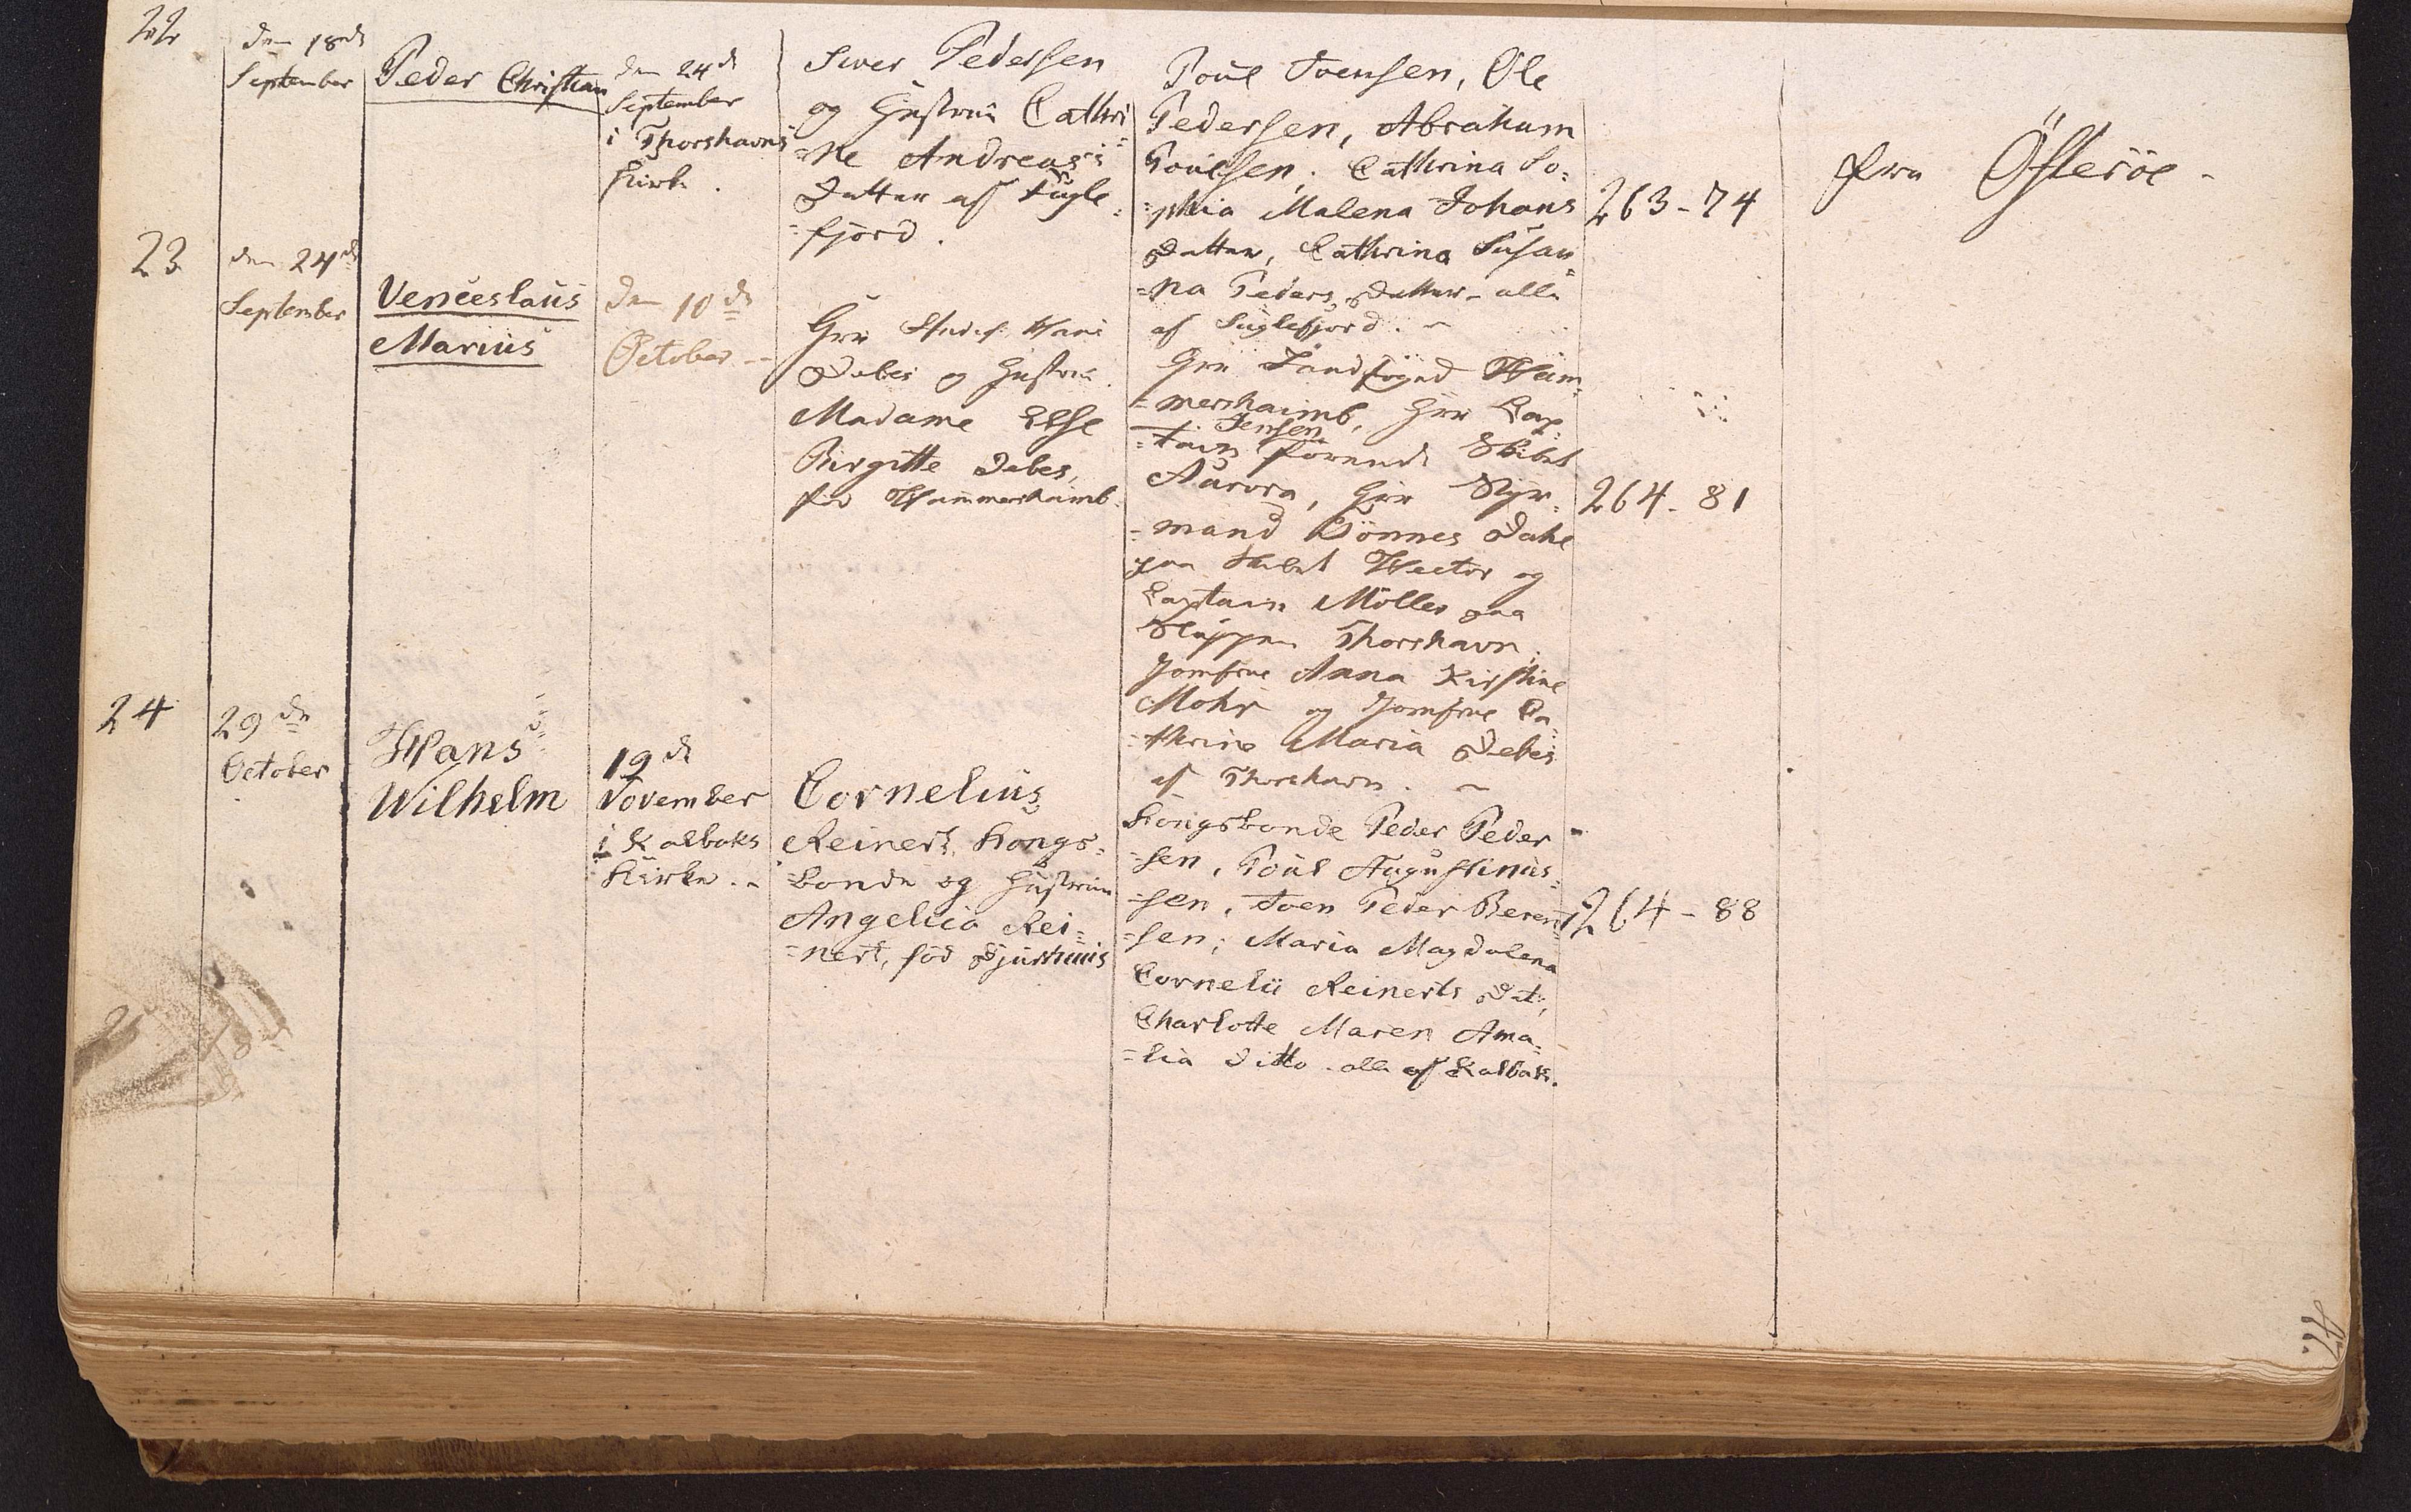 22
den 18de
September
Peder Christian
den 24de
September
i Thorshavns
Kirke.
Siver Pedersen
og Hustrue Cathri=
=ne Andreas's
Datter af Fugle=
=fjord.
Poul Joensen, Ole
Pedersen, Abraham
Poulsen. Cathrina So=
=phia Malena Johans
Datter, Cathrina Susan
=na Peders Datter - alle
af Fuglefjord. ~
263-74
fra Østerøe -
23
den 24de
September
Venceslaus
Marius
den 10de
October -
Herr Hans
Debes og Hustrue
Madame Else
Birgitte Debes,
fød Wammershaimb.
Herr Landfoged Wam=
=mershaimb, Herr Cap=
Jensen
=tain førende Skibet
Aurora, Herr Styr=
=mand Tønnes Dahl
paa Skibet Hector og
Captain Møller paa
Sluppen Thorshavn;
Jomfrue Anna Kirstine
Mohr og Jomfrue Ca=
=thrine Maria Debes
af Thorshavn. ~
264-81
24
29de
October
Hans
Wilhelm
19de
November
i Kalbaks
Kirke. ~
Cornelius
Reinert, Kongs=
=bonde og Hustrue
Angelica Rei=
=nert, fød Djurhuus
Kongsbonde Peder Peder
=sen, Poul Augustinus=
=sen, Joen Peder Berent
=sen; Maria Magdalena
Cornelii Reinerts Dat:,
Charlotte Maren Ama=
=lia Ditto - alle af Kalbak.
264-88
47.